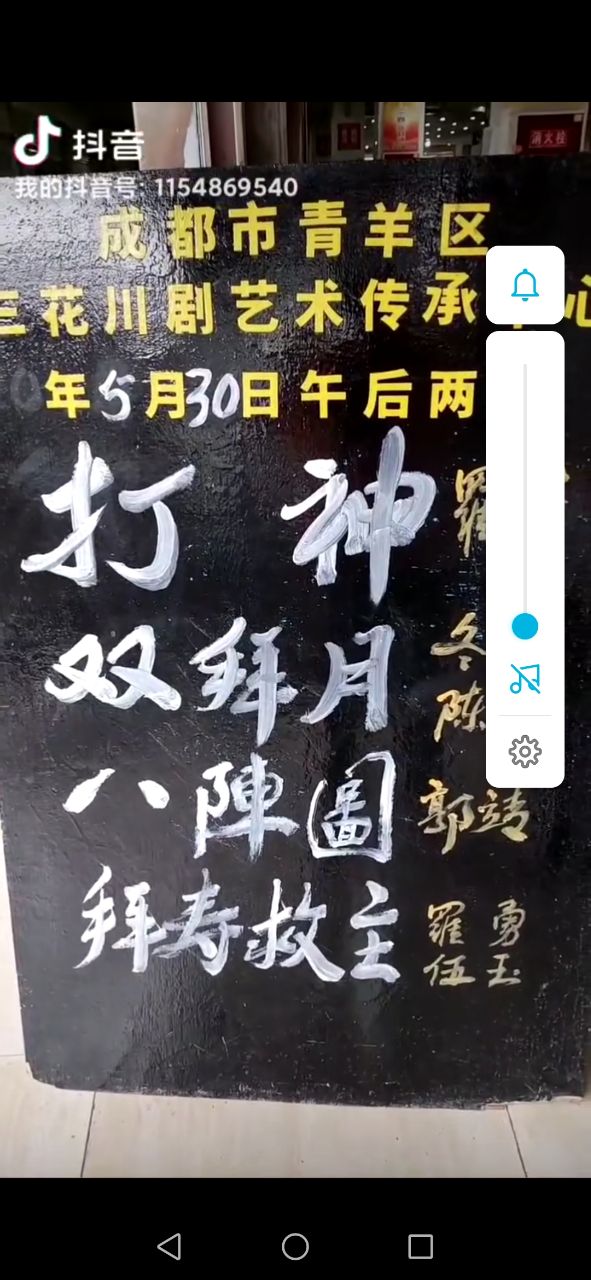 抖音
我的抖音号: 1154869540
消火栓
成都市青羊区
三花川剧艺术传承中心
0年5月30日午后两
打神 羅
双拜月 冬
陈
八陣圖 郭靖
拜寿救主 羅勇
伍玉